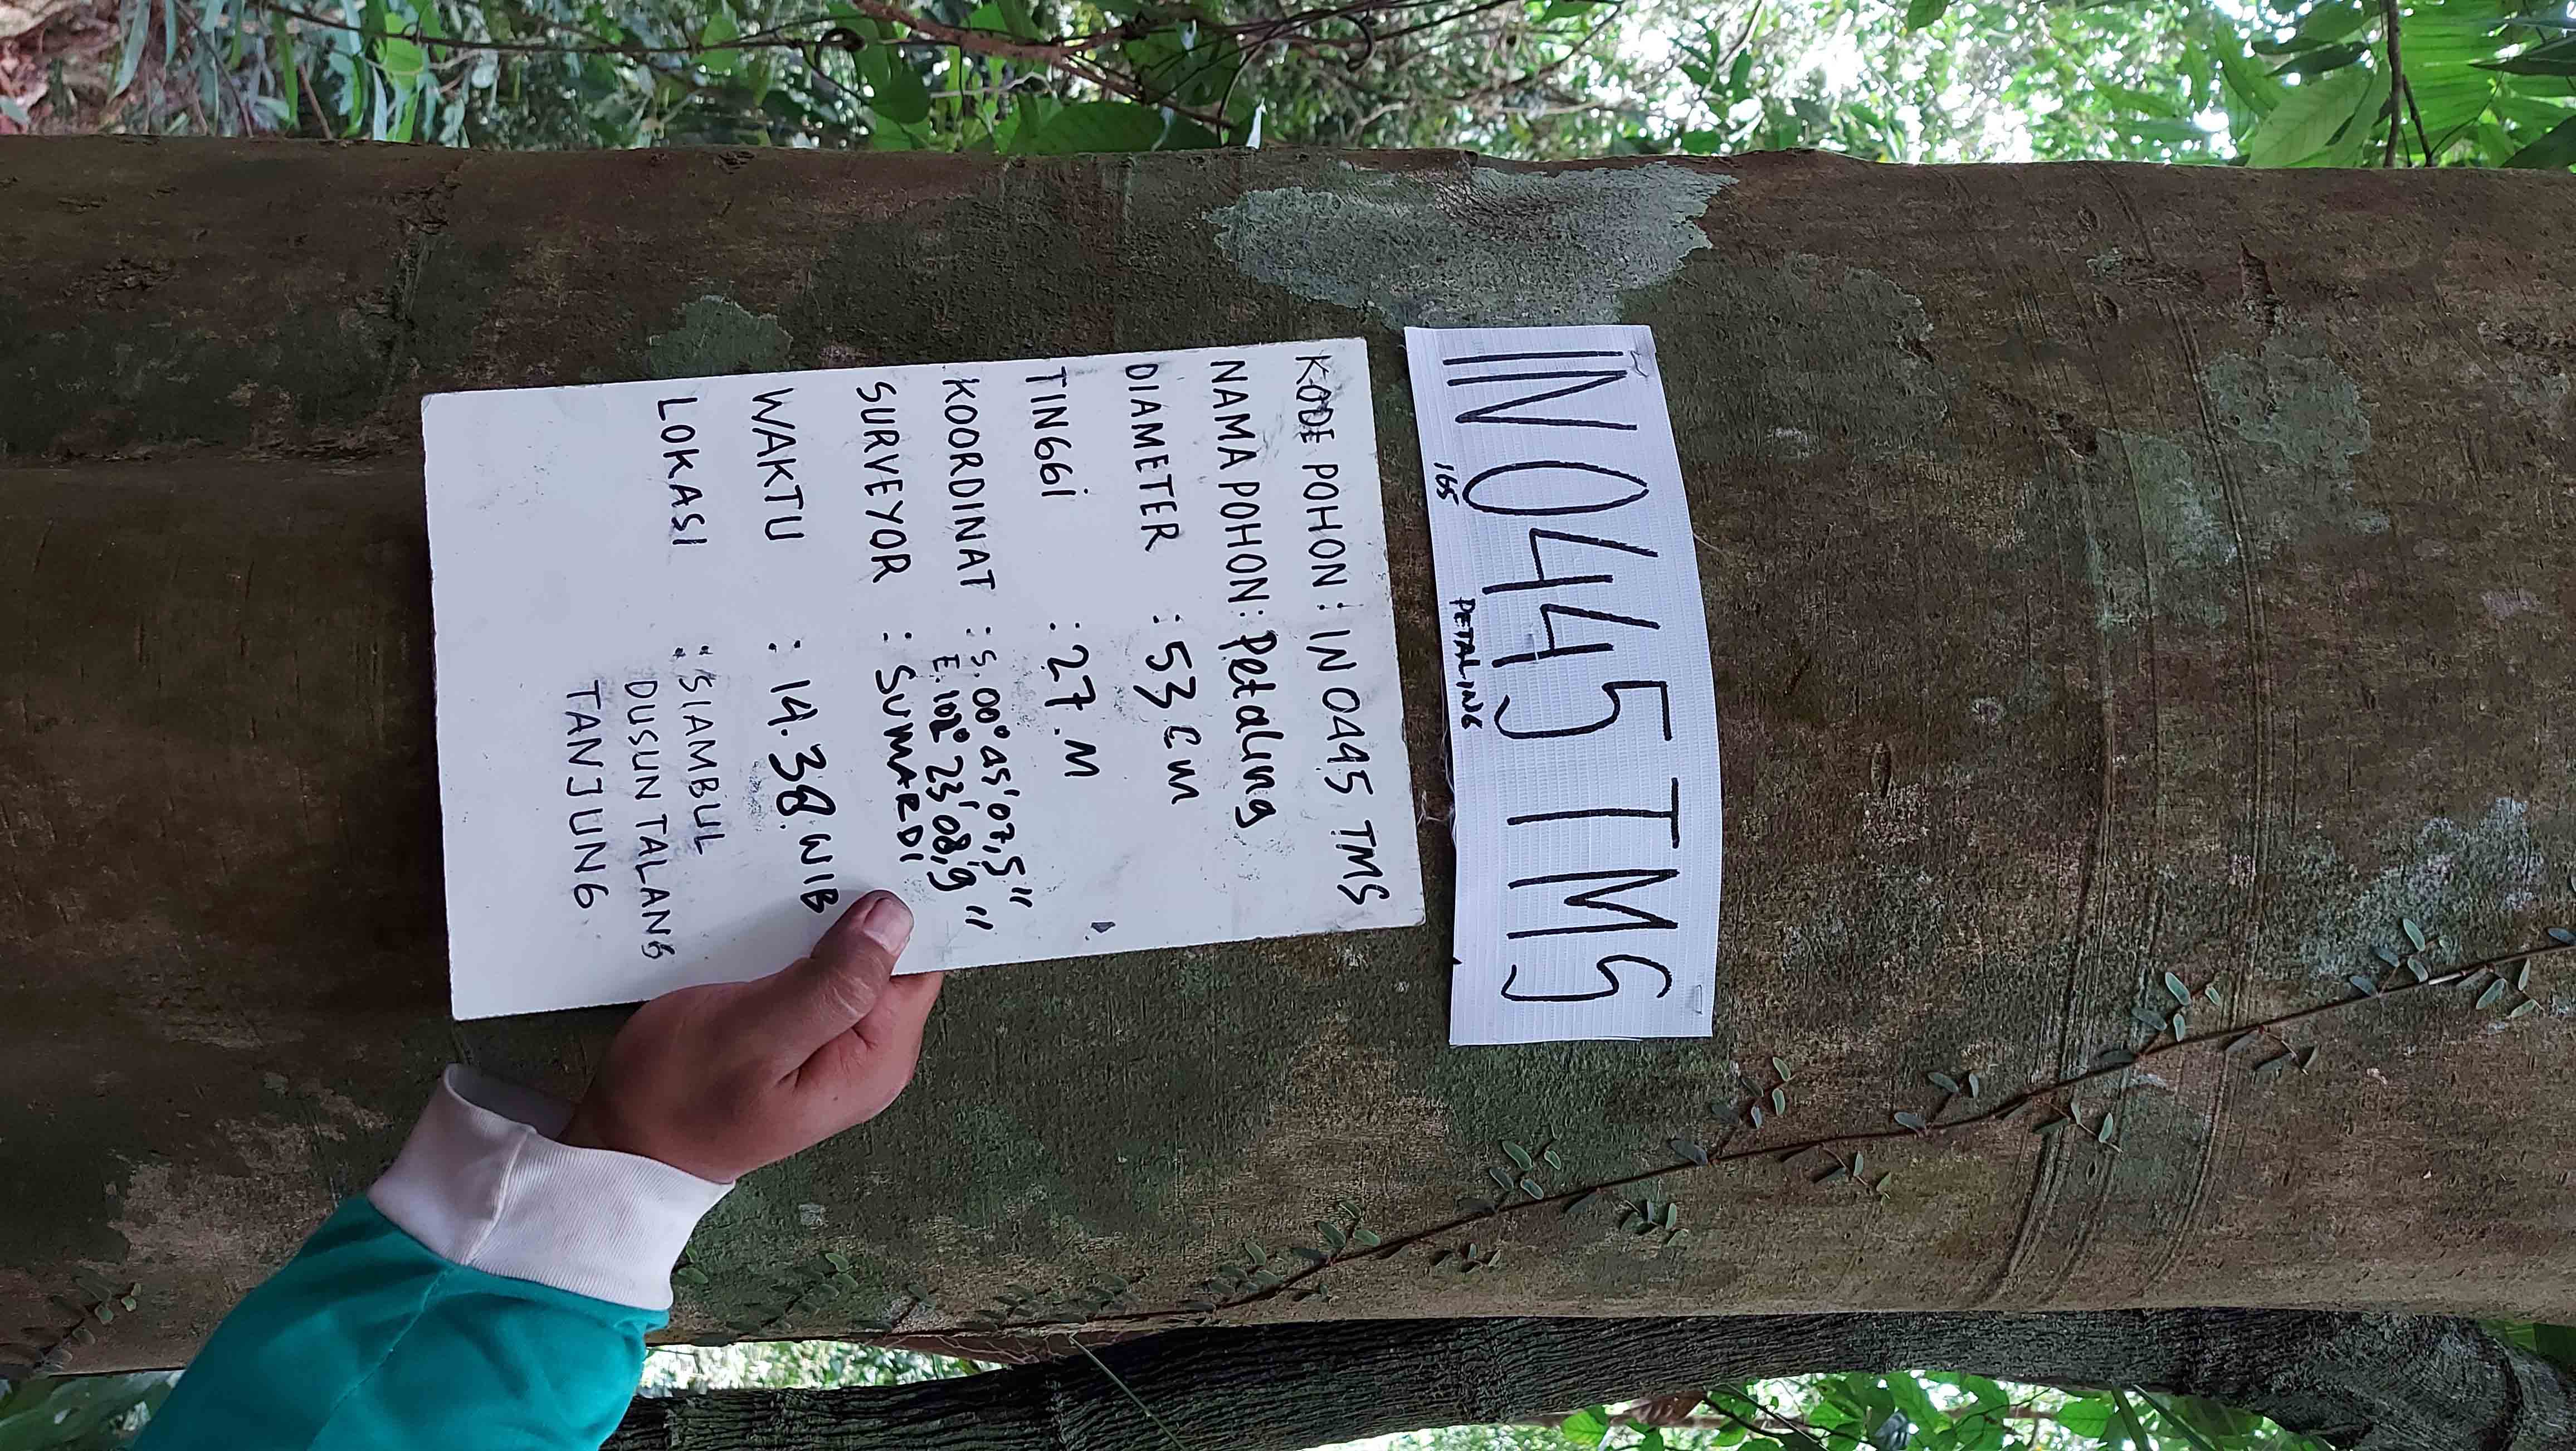 IN 0445 TMS
165 PETALING
KODE POHON : IN 0445 TMS
NAMA POHON : Petaling
DIAMETER : 53 cm
TINGGI : 27.M
KOORDINAT : S. 00° 45' 07,5"
E. 102° 23' 08,9"
SURVEYOR : SUMARDI
WAKTU : 14.38. WIB
LOKASI : SIAMBUL
DUSUN TALANG
TANJUNG